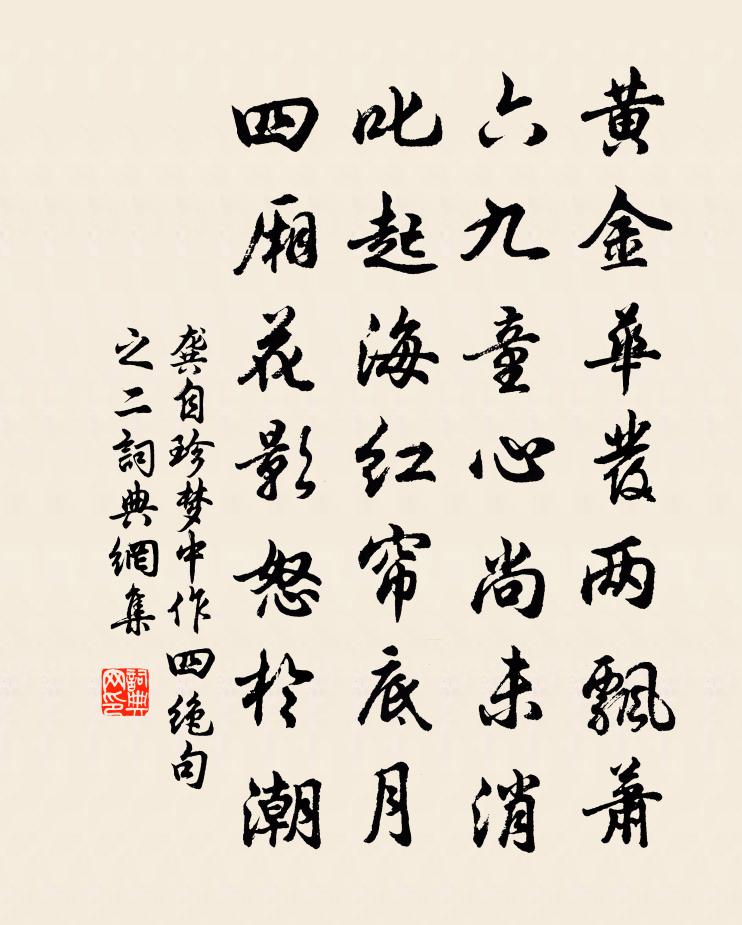 黄金華發两飄蕭
六九童心尚未消
叱起海红帘底月
四厢花影怒於潮
龚自珍梦中作四绝句
之二詞典網集
詞典
网印